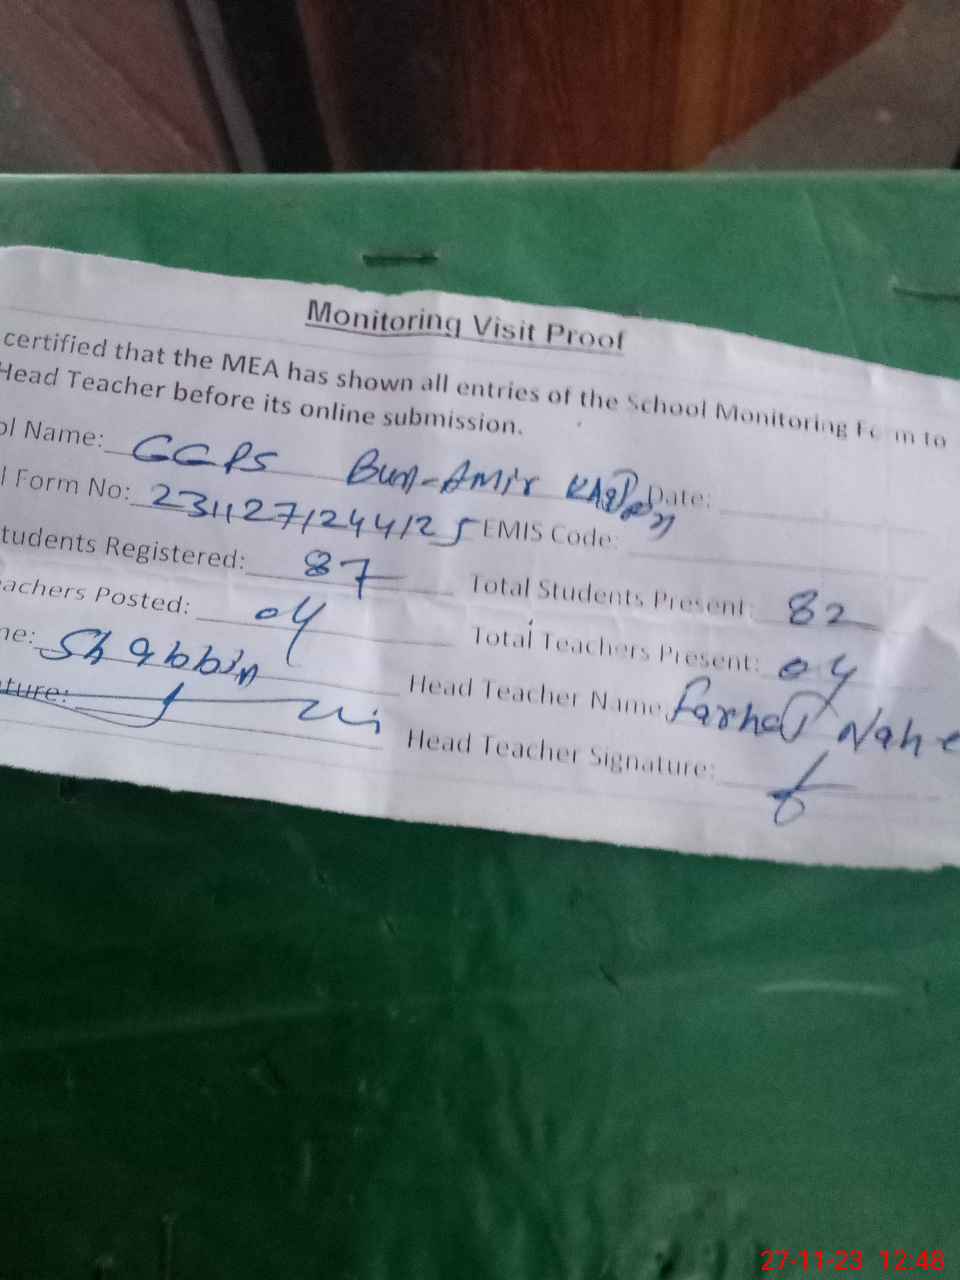 Monitoring Visit Proof
certified that the MEA has shown all entries of the School Monitoring Form to
Head Teacher before its online submission.
ol Name: GGPS Bun-Amir Date:
l Form No: 2311271244125 EMIS Code:
tudents Registered: 87 Total Students Present: 82
achers Posted: 04 Total Teachers Present: 04
me: Shabbir Head Teacher Name: Farhat Nahe
ture: Head Teacher Signature:
27-11-23 12:48